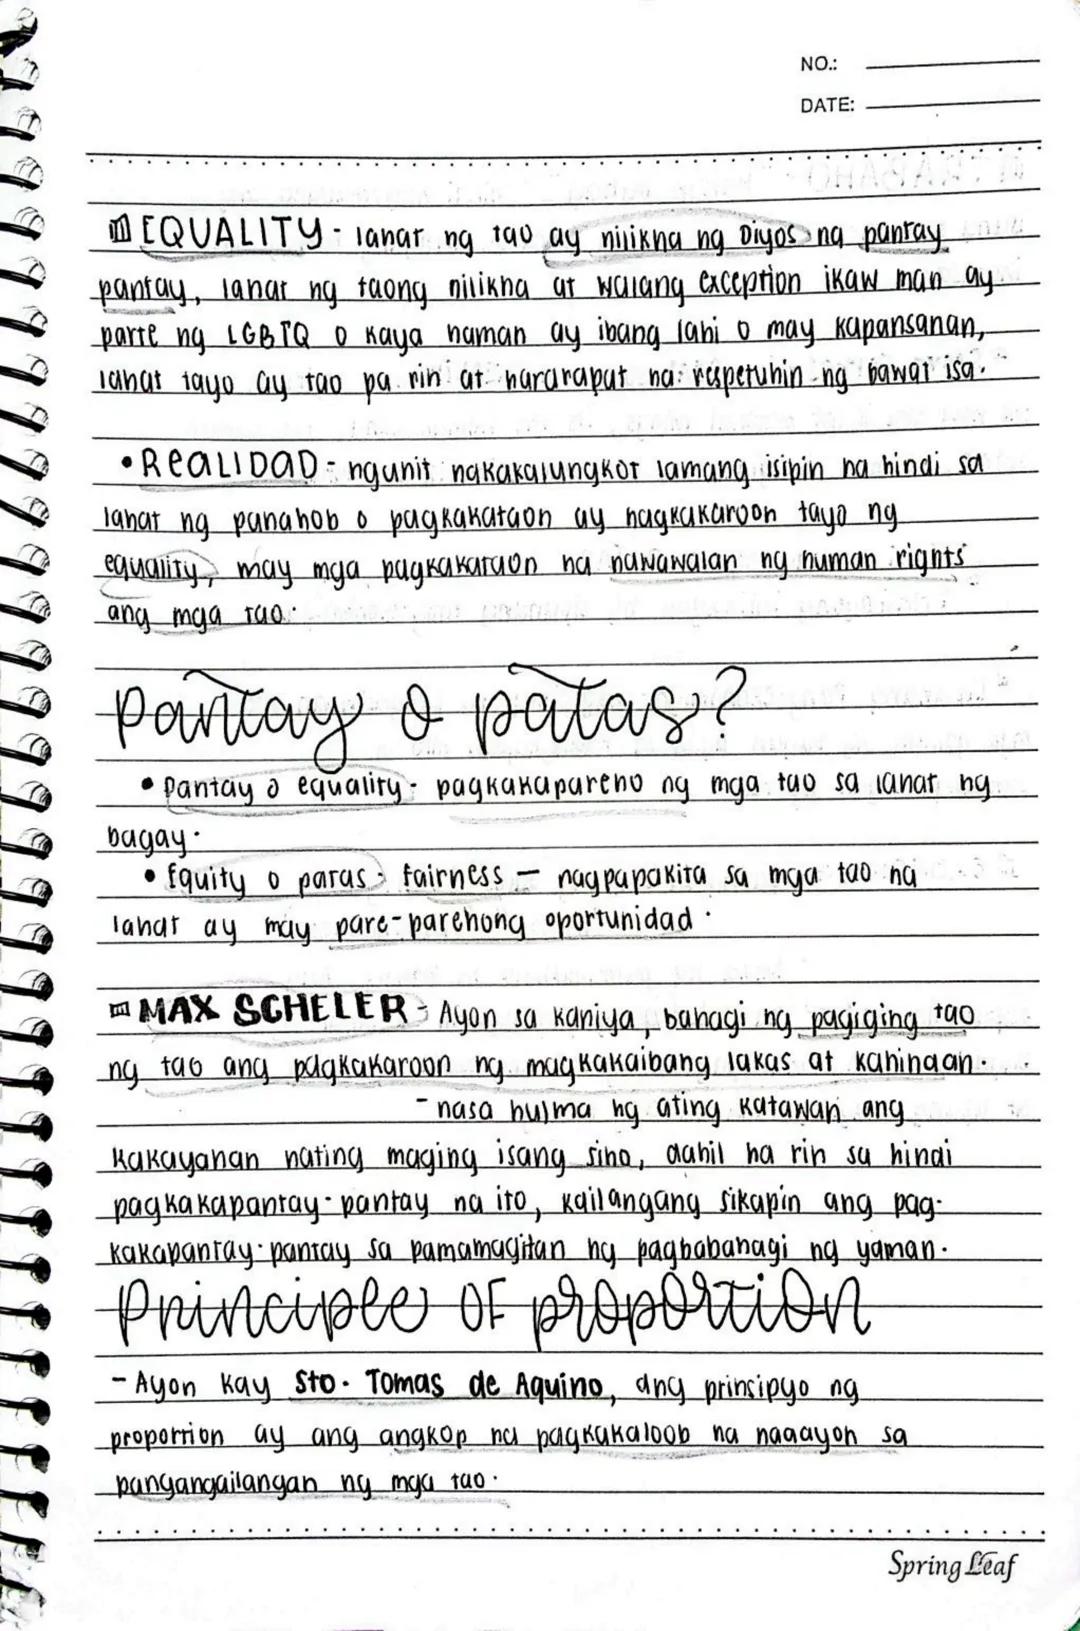 NO.:
DATE:
EQUALITY - lahat ng tao ay nilikha ng Diyos na pantay
pantay, lahat ng taong nilikha at walang exception ikaw man ay
parte ng LGBTQ o kaya naman ay ibang lahi o may kapansanan,
lahat tayo ay tao pa rin at nararapat na respetuhin ng bawat isa.
• REALIDAD - ngunit nakakalungkot lamang isipin na hindi sa
lahat ng panahob o pagkakataon ay nagkakaroon tayo ng
equality, may mga pagkakataon na nawawalan ng human rights
ang mga tao.
Pantay o patas?
• Pantay o equality - pagkakapareho ng mga tao sa lahat ng
bagay.
• Equity o patas - fairness — nagpapakita sa mga tao na
lahat ay may pare-parehong oportunidad.
MAX SCHELER - Ayon sa kaniya, bahagi ng pagiging tao
ng tao ang pagkakaroon ng magkakaibang lakas at kahinaan.
- nasa hulma ng ating katawan ang
kakayahan nating maging isang sino, dahil na rin sa hindi
pagkakapantay-pantay na ito, kailangang sikapin ang pag-
kakapantay-pantay sa pamamagitan ng pagbabahagi ng yaman.
Principle OF proportion
- Ayon kay Sto. Tomas de Aquino, ang prinsipyo ng
proportion ay ang angkop na pagkakaloob na naaayon sa
pangangailangan ng mga tao.
Spring Leaf